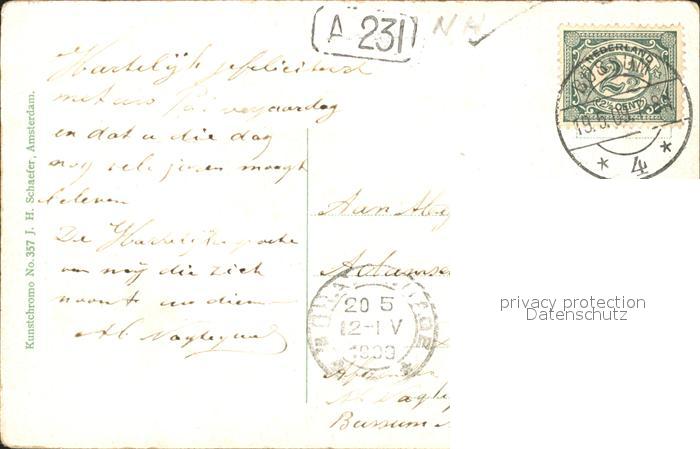 A 231
NH
NEDERLAND
2½
2½ CENT
BUSSUM
19.5.09
* 4 *
Kunstchromo No. 357 J. H. Schaefer, Amsterdam.
Hartelijk gefeliciteerd
met uw verjaardag
en dat u die dag
nog vele jaren moogt
beleven
De Hartelijke groete
van mij die zich
noemt uw
Aan
20 5
12-1 V
Afzender
Bussum
privacy protection
Datenschutz